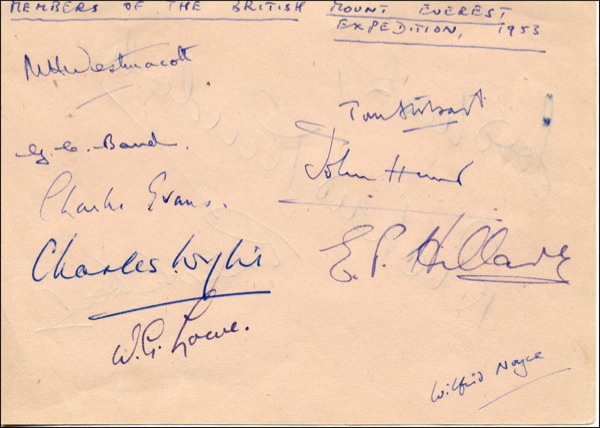 MEMBERS OF THE BRITISH MOUNT EVEREST
EXPEDITION, 1953
MHWestmacott
Tom Stobart
G. C. Band.
John Hunt
Charles Evans.
E. P. Hillary
Charles Wylie
W. G. Lowe.
Wilfrid Noyce